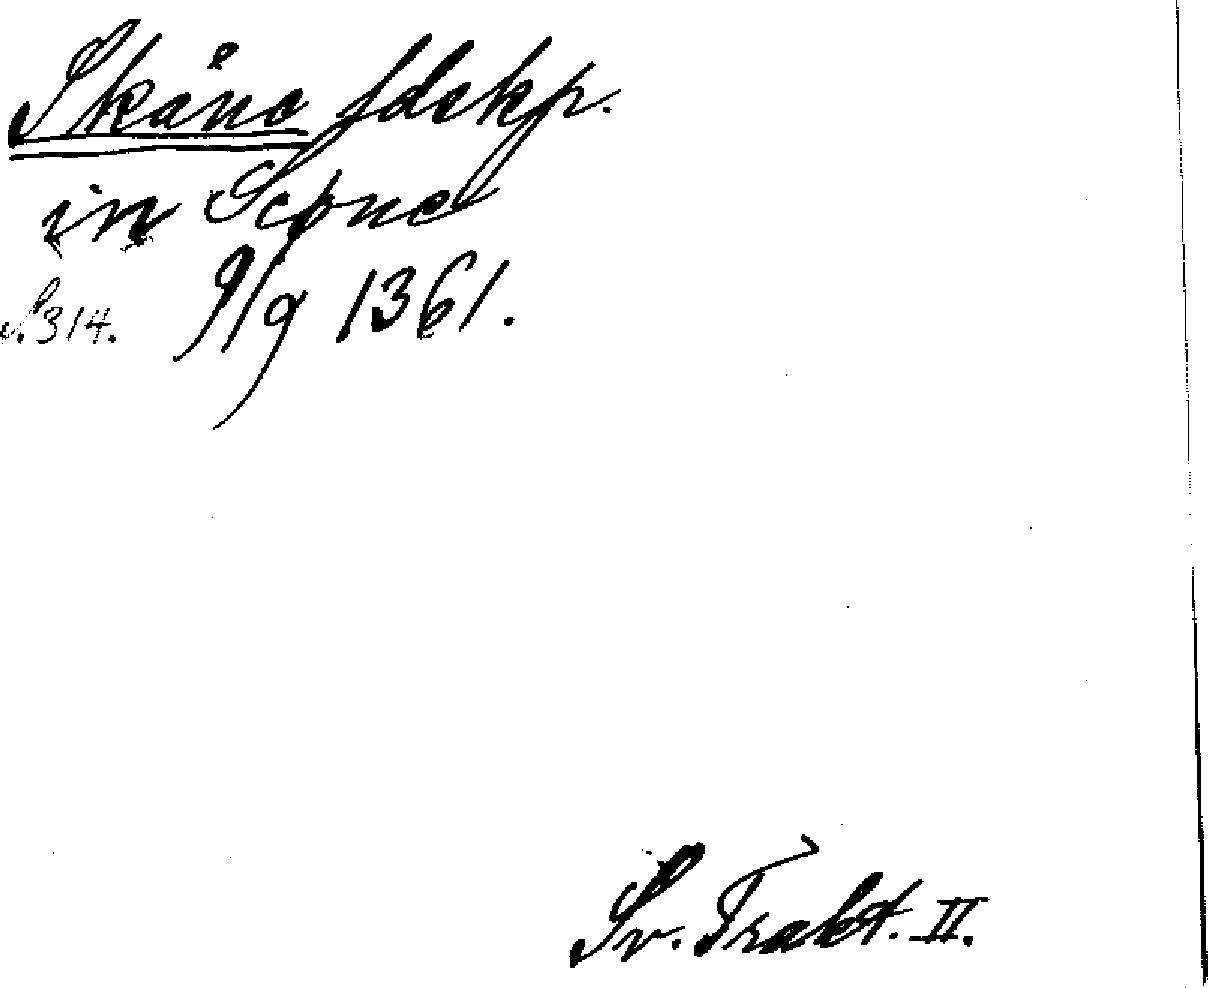 Skåne ldskp.
in Scone
S. 314. 9/9 1361.
Sv. Trakt. II.